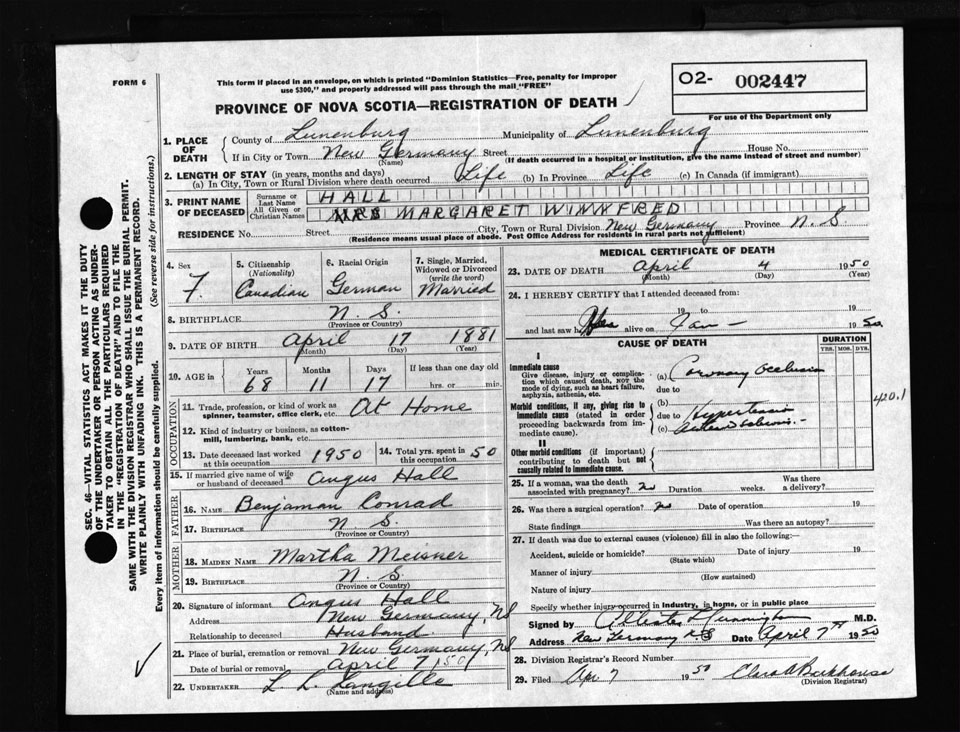 FORM 6
This form if placed in an envelope, on which is printed "Dominion Statistics—Free, penalty for improper
use $300," and properly addressed will pass through the mail "FREE"
PROVINCE OF NOVA SCOTIA—REGISTRATION OF DEATH
O2- 002447
For use of the Department only
1. PLACE OF DEATH
County of Lunenburg Municipality of Lunenburg
If in City or Town New Germany Street House No.
(Name) (If death occurred in a hospital or institution, give the name instead of street and number)
2. LENGTH OF STAY (in years, months and days)
(a) In City, Town or Rural Division where death occurred Life (b) In Province Life (c) In Canada (if immigrant)
3. PRINT NAME OF DECEASED
Surname or Last Name HALL
All Given or Christian Names MRS MARGARET WINNFRED
RESIDENCE No. Street City, Town or Rural Division New Germany Province N.S.
(Residence means usual place of abode. Post Office Address for residents in rural parts not sufficient)
4. Sex F.
5. Citizenship (Nationality) Canadian
6. Racial Origin German
7. Single, Married, Widowed or Divorced (write the word) Married
8. BIRTHPLACE N. S.
(Province or Country)
9. DATE OF BIRTH April 17 1881
(Month) (Day) (Year)
10. AGE in Years Months Days If less than one day old
68 11 17 hrs. or min.
OCCUPATION
11. Trade, profession, or kind of work as spinner, teamster, office clerk, etc. At Home
12. Kind of industry or business, as cotton-mill, lumbering, bank, etc.
13. Date deceased last worked at this occupation 1950
14. Total yrs. spent in this occupation 50
15. If married give name of wife or husband of deceased Angus Hall
FATHER
16. Name Benjaman Conrad
17. Birthplace N. S.
(Province or Country)
MOTHER
18. MAIDEN NAME Martha Meisner
19. BIRTHPLACE N. S.
(Province or Country)
20. Signature of informant Angus Hall
Address New Germany, NS
Relationship to deceased Husband
21. Place of burial, cremation or removal New Germany, NS
Date of burial or removal April 7/50
22. UNDERTAKER L. L. Langille
(Name and address)
MEDICAL CERTIFICATE OF DEATH
23. DATE OF DEATH April 4 1950
(Month) (Day) (Year)
24. I HEREBY CERTIFY that I attended deceased from:
19 to 19
and last saw h alive on Jan - 1950
CAUSE OF DEATH
DURATION
YRS. MOS. DYS.
I
Immediate cause
Give disease, injury or complication which caused death, NOT the mode of dying, such as heart failure, asphyxia, asthenia, etc.
(a) Coronary Occlusion
due to
Morbid conditions, if any, giving rise to immediate cause (stated in order proceeding backwards from immediate cause).
(b)
due to Hypertension
(c)
420.1
II
Other morbid conditions (if important) contributing to death but not causally related to immediate cause.
25. If a woman, was the death associated with pregnancy? no Duration weeks. Was there a delivery?
26. Was there a surgical operation? no Date of operation 19
State findings Was there an autopsy?
27. If death was due to external causes (violence) fill in also the following:—
Accident, suicide or homicide? Date of injury 19
(State which)
Manner of injury
(How sustained)
Nature of injury
Specify whether injury occurred in industry, in home, or in public place
Signed by M.D.
Address New Germany NS Date April 7th 1950
28. Division Registrar's Record Number
29. Filed Apr 7 1950 Clara A Backhouse
(Division Registrar)
SEC. 46—VITAL STATISTICS ACT MAKES IT THE DUTY
OF THE UNDERTAKER OR PERSON ACTING AS UNDER-
TAKER TO OBTAIN ALL THE PARTICULARS REQUIRED
IN THE "REGISTRATION OF DEATH" AND TO FILE THE
SAME WITH THE DIVISION REGISTRAR WHO SHALL ISSUE THE BURIAL PERMIT.
WRITE PLAINLY WITH UNFADING INK. THIS IS A PERMANENT RECORD.
Every item of information should be carefully supplied. (See reverse side for instructions.)